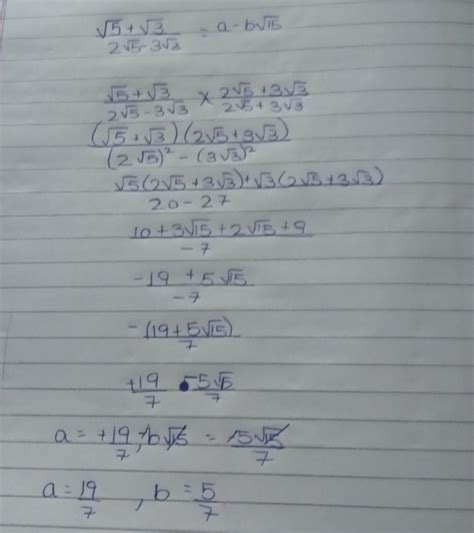 (√5 + √3)/(2√5 - 3√3) = a - b√15
(√5 + √3)/(2√5 - 3√3) × (2√5 + 3√3)/(2√5 + 3√3)
(√5 + √3)(2√5 + 3√3)/((2√5)² - (3√3)²)
√5(2√5 + 3√3) + √3(2√5 + 3√3)/(20 - 27)
(10 + 3√15 + 2√15 + 9)/(-7)
(-19 + 5√15)/(-7)
-(19 + 5√15)/7
+19/7 - 5√5/7
a = +19/7, -b√15 = -5√15/7
a = 19/7, b = 5/7